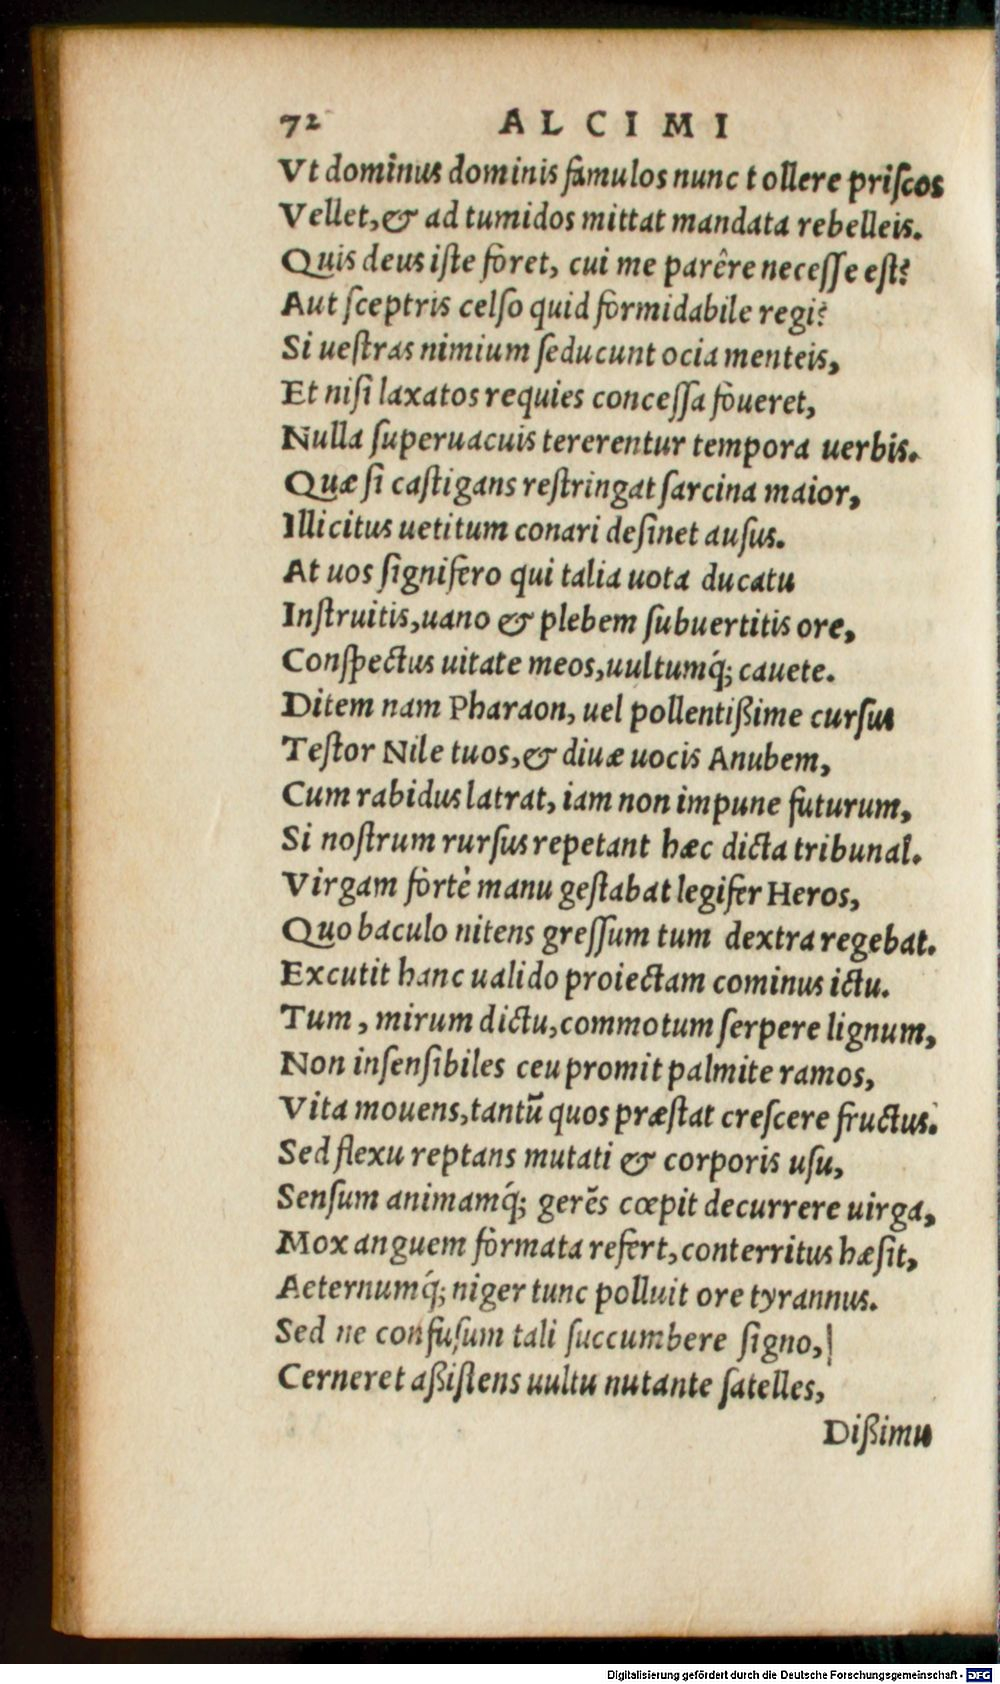 72 ALCIMI
Vt dominus dominis famulos nunc tollere priſcos
Vellet,& ad tumidos mittat mandata rebelleis.
Quis deus iſte foret, cui me parêre neceſſe eſt?
Aut ſceptris celſo quid formidabile regi?
Si ueſtras nimium ſeducunt ocia menteis,
Et niſi laxatos requies conceſſa foueret,
Nulla ſuperuacuis tererentur tempora uerbis.
Quæ ſi caſtigans reſtringat ſarcina maior,
Illicitus uetitum conari deſinet auſus.
At uos ſignifero qui talia uota ducatu
Inſtruitis,uano & plebem ſubuertitis ore,
Conſpectus uitate meos,uultumq́; cauete.
Ditem nam Pharaon, uel pollentißime curſus
Teſtor Nile tuos,& diuæ uocis Anubem,
Cum rabidus latrat, iam non impune futurum,
Si noſtrum rurſus repetant hæc dicta tribunal.
Virgam fortè manu geſtabat legifer Heros,
Quo baculo nitens greſſum tum dextra regebat.
Excutit hanc ualido proiectam cominus ictu.
Tum, mirum dictu,commotum ſerpere lignum,
Non inſenſibiles ceu promit palmite ramos,
Vita mouens,tantū quos præſtat creſcere fructus.
Sed flexu reptans mutati & corporis uſu,
Senſum animamq́; gerēs cœpit decurrere uirga,
Mox anguem formata refert,conterritus hæſit,
Aeternumq́; niger tunc polluit ore tyrannus.
Sed ne confuſum tali ſuccumbere ſigno,
Cerneret aßiſtens uultu nutante ſatelles,
Dißimu
Digitalisierung gefördert durch die Deutsche Forschungsgemeinschaft - DFG